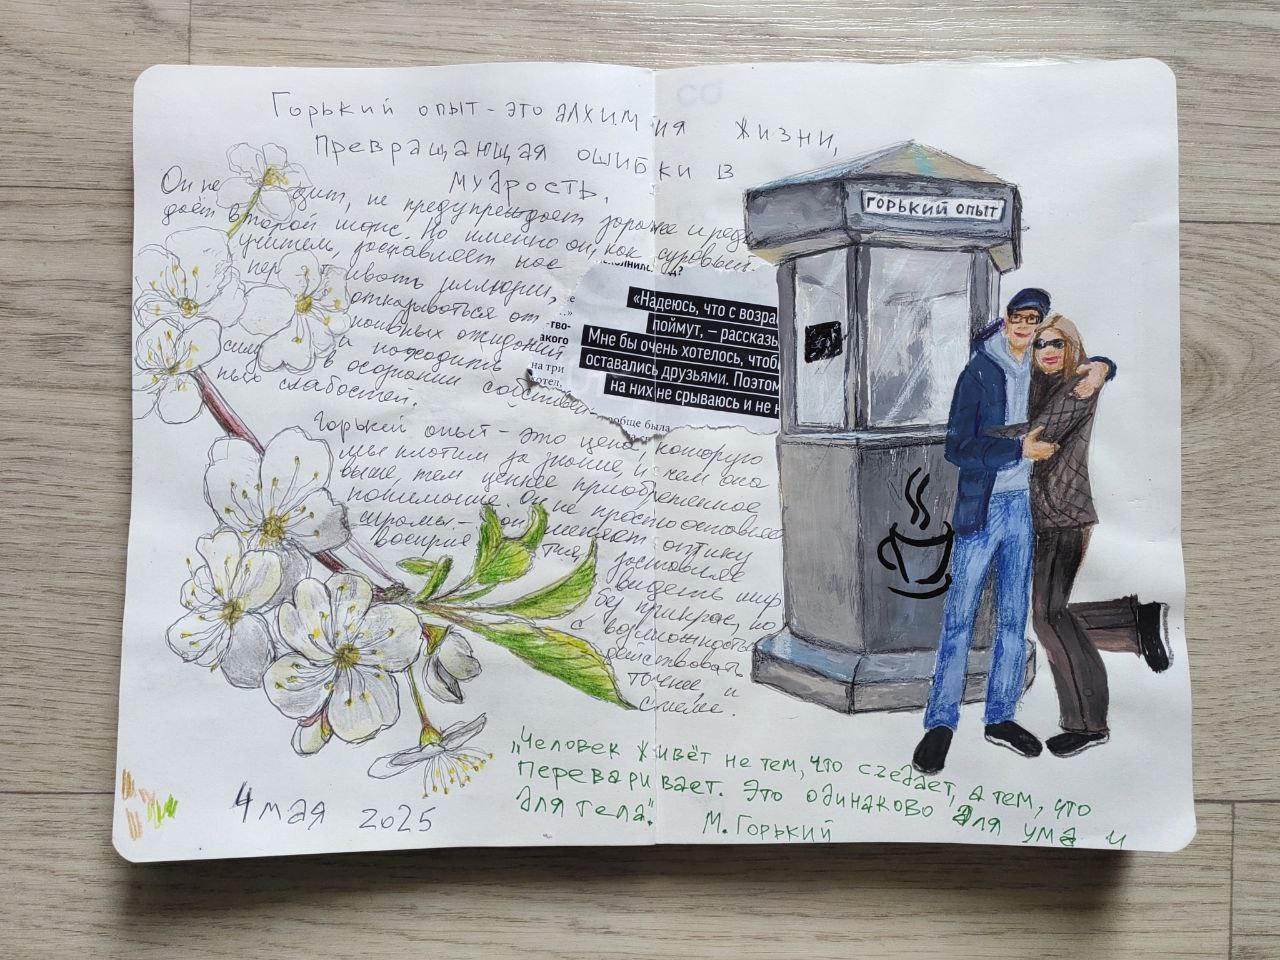 Горький опыт - это алхимия жизни,
превращающая ошибки в
мудрость.
Он не щадит, не предупреждает заранее и редко
даёт второй шанс. Но именно он, как суровый
учитель, заставляет нас
иллюзии,
отказываться от
ожиданий
и находить
силу в осознании собствен-
ных слабостей.
Горький опыт - это цена, которую
мы платим за знание, и чем она
выше, тем ценнее приобретённое
понимание. Он не просто оставляет
шрамы - он меняет оптику
восприятия,
заставляя
видеть мир
без прикрас, но
с возможностью
действовать
точнее и
смелее.
полнилс д?
«Надеюсь, что с возра
поймут, — рассказы
Мне бы очень хотелось, чтоб
оставались друзьями. Поэтом
на них не срываюсь и не
…»
тво-
акого
на три
хотел,
ообще была
ГОРЬКИЙ ОПЫТ
„Человек живёт не тем, что съедает, а тем, что
переваривает. Это одинаково для ума и
для тела".
М. Горький
4 мая 2025